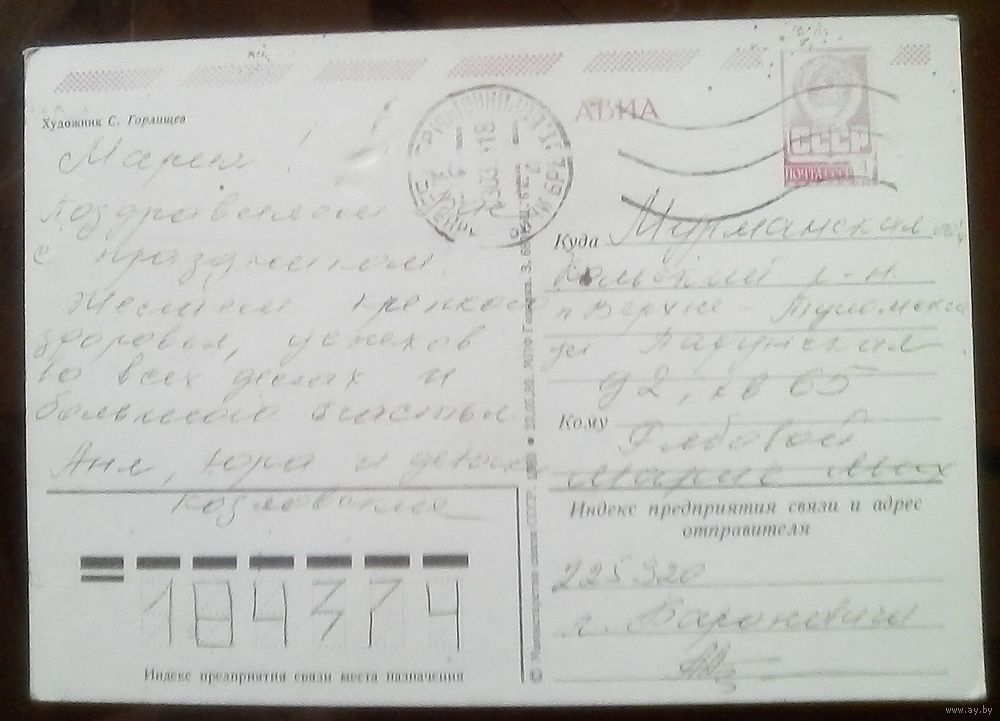 Художник С. Горлищев
АВИА
СССР
ПОЧТА
Мария!
Поздравляем
с праздником.
Желаем крепкого
здоровья, успехов
во всех делах и
большого счастья
Аня, Юра и
Куда Мурманская обл
Кольский р-н
п Верхне-Туломский
ул Падунская
д 2, кв 65
Кому Рябовой
Марие Мих
Индекс предприятия связи и адрес
отправителя
225320
г. Барановичи
184374
Индекс предприятия связи места назначения
© Министерство связи СССР.
www.ay.by